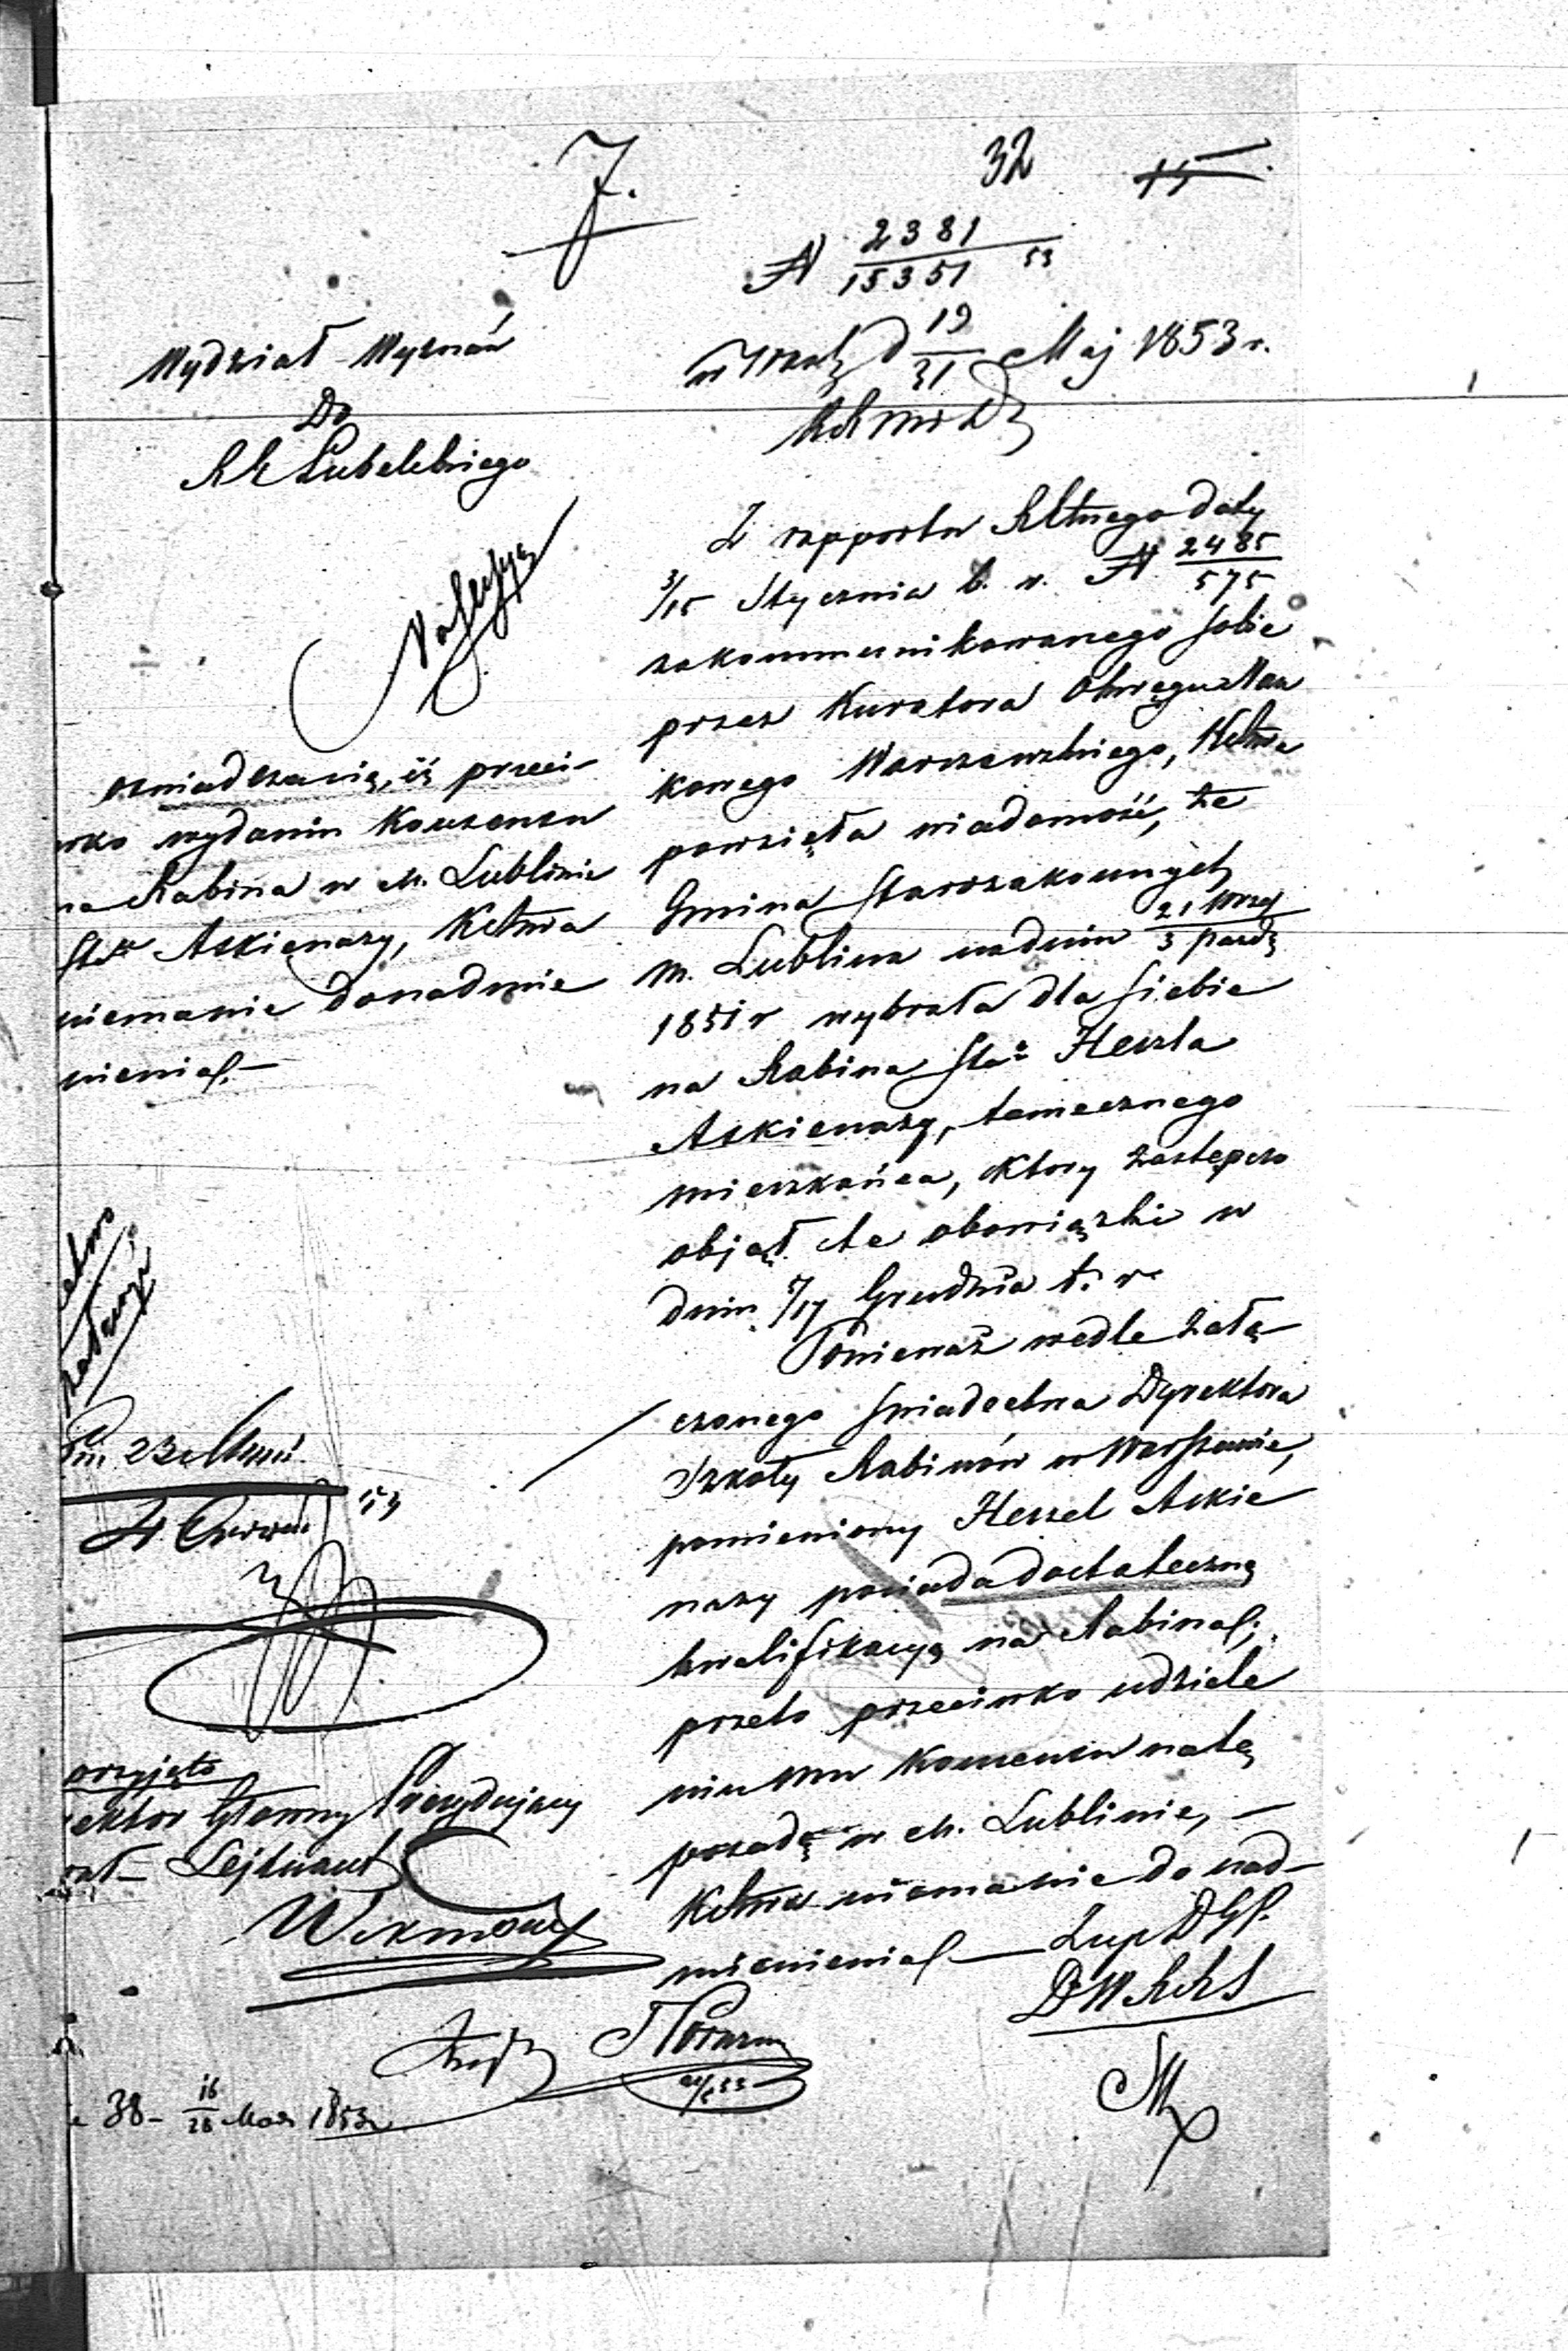 7.
32
15
N 2381/15351 53
Wydział Wyznań
Do
Lubelskiego
d 19/31 Maj 1853 r.
Z rapportu daty
3/15 Stycznia b. r. N 2485/575
zakommunikowanego sobie
przez Kuratora Okręgu Nau
kowego Warszawskiego,
powzięła wiadomość, że
Gmina Starozakonnych
m. Lublina w dniu 21 Wrześ/3 Paźdz
1851 r wybrała dla siebie
na Rabina Sta Herszla
Askienazy, tamecznego
mieszkańca, który zastępczo
objął te obowiązki w
dniu 5/17 Grudnia t. r.
Ponieważ wedle załą-
czonego świadectwa Dyrektora
Szkoły Rabinów w Warszawie,
pomieniony Herszel Askie
nazy posiada dostateczną
kwalifikacyą na Rabina;
przeto przeciwko udziele
niu mu Konsensu na tę
posadę w m. Lublinie, –
niema nic do nad-
mienienia –
oświadcza się, iż przeci-
wko wydaniu Konsensu
na Rabina w m. Lublinie
Askienazy,
niema nic do nadmie
nienia. –
23 Maja
4 Czerwca 53
przyjęto
ektor Główny Prezydujący
rał – Lejtnant
38 – 16/28 Maja 1853 r